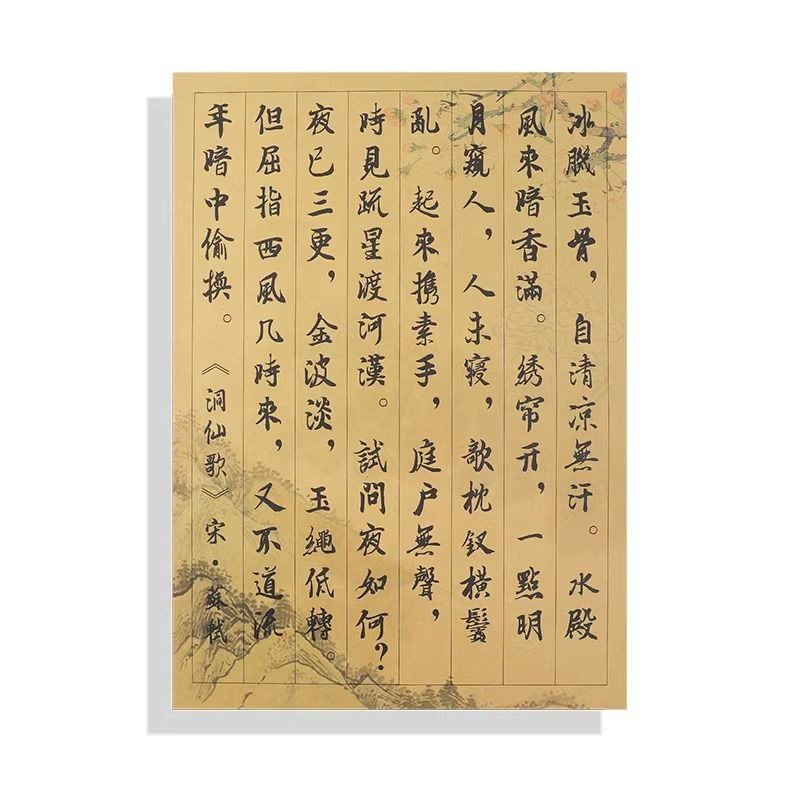 冰肌玉骨，自清凉無汗。水殿
風來暗香滿。绣帘开，一點明
月窺人，人未寢，欹枕釵橫鬢
亂。起來携素手，庭户無聲，
時見疏星渡河漢。試問夜如何？
夜已三更，金波淡，玉繩低轉。
但屈指西風几時來，又不道流
年暗中偷換。《洞仙歌》宋·蘇軾